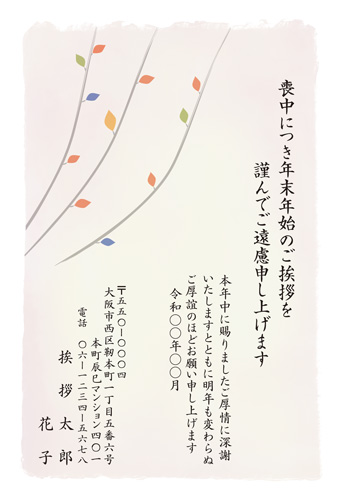 喪中につき年末年始のご挨拶を
謹んでご遠慮申し上げます
本年中に賜りましたご厚情に深謝
いたしますとともに明年も変わらぬ
ご厚誼のほどお願い申し上げます
令和〇〇年〇〇月
〒五五〇ー〇〇〇四
大阪市西区靭本町一丁目五番六号
本町辰巳マンション四〇一
電話 〇六ー一二三四ー五六七八
挨拶 太郎
花子